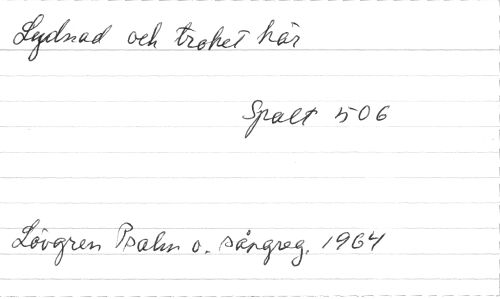 Lydnad och trohet här
Spalt 506
Lövgren Psalm o. sångreg. 1964